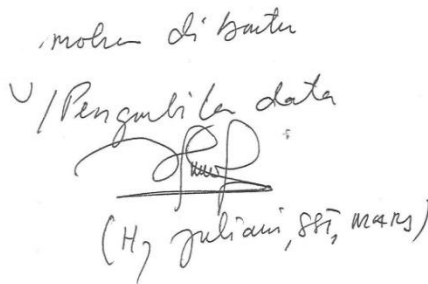 mohon di bantu
U/ Pengambilan data
(Hj Juliani, SSi, MARS)